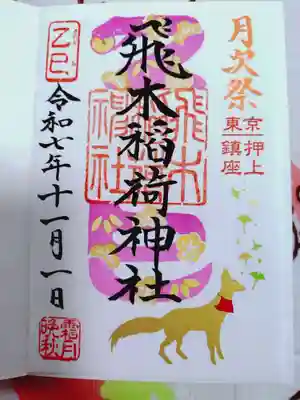 月次祭
東京押上
鎮座
飛木稲荷神社
飛木
稲荷
神社
乙巳
令和七年十一月一日
霜月
晩秋